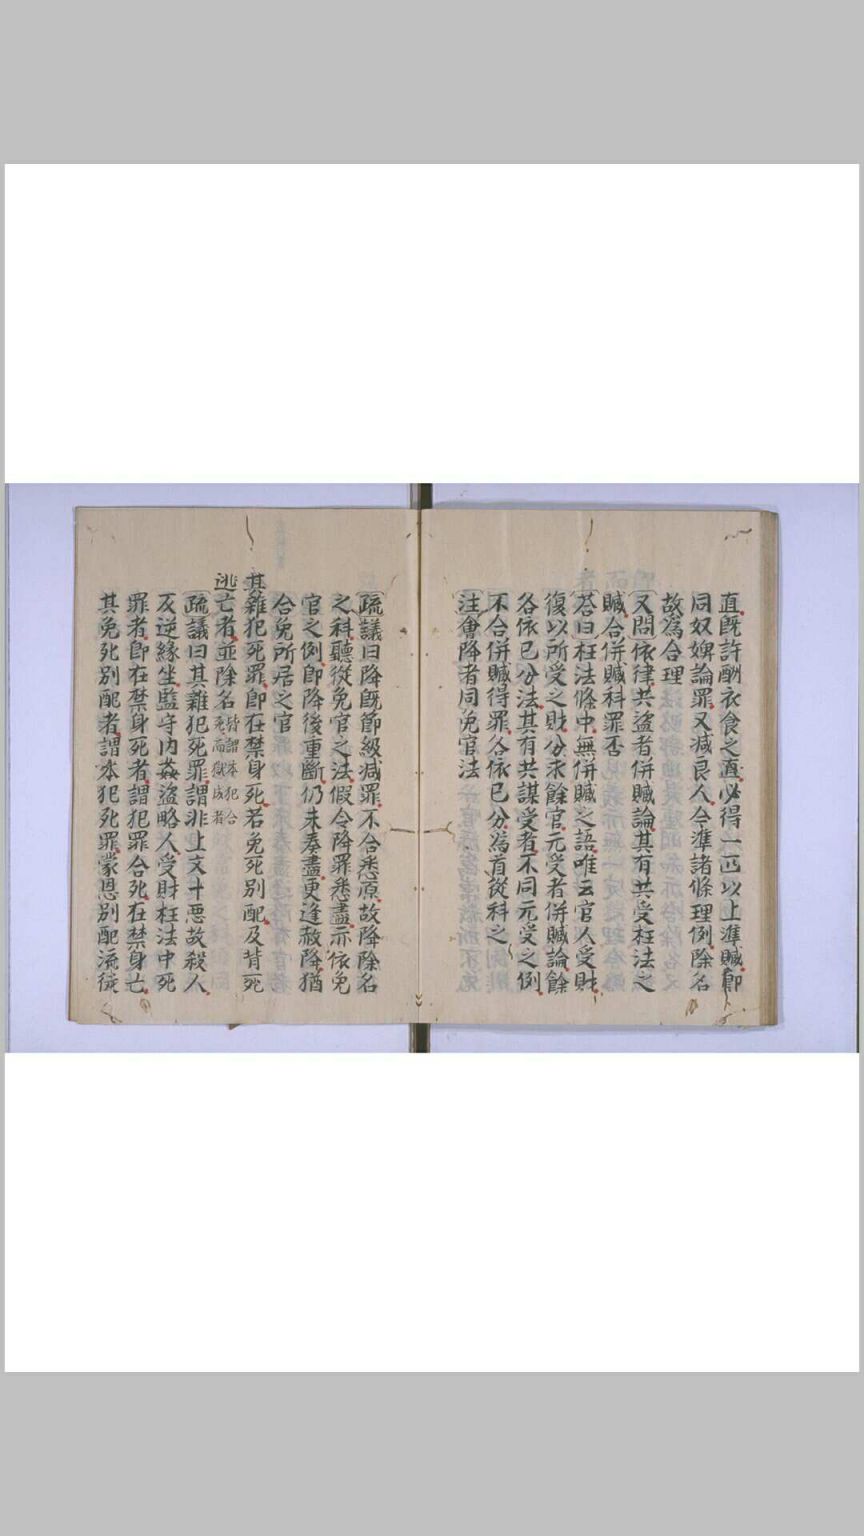 直既許酬衣食之直必得一匹以上準贓即
同奴婢論罪又減良人今準諸條理例除名
故為合理
又問依律共盜者併贓論其有共受枉法之
贓合併贓科罪否
荅曰枉法條中無併贓之語唯云官人受財
復以所受之財分求餘官元受者併贓論餘
各依已分法其有共謀受者不同元受之例
不合併贓得罪各依已分為首從科之
注會降者同免官法
疏議曰降既節級減罪不合悉原故降除名
之科聽從免官之法假令降罪悉盡亦依免
官之例即降後重斷仍未奏盡更逢赦降猶
合免所居之官
其雜犯死罪即在禁身死若免死別配及背死
逃亡者並除名皆謂本犯合
死而獄成者
疏議曰其雜犯死罪謂非上文十惡故殺人
及逆緣坐監守內姦盜略人受財枉法中死
罪者即在禁身死者謂犯罪合死在禁身亡
其免死別配者謂本犯死罪蒙恩別配流徒